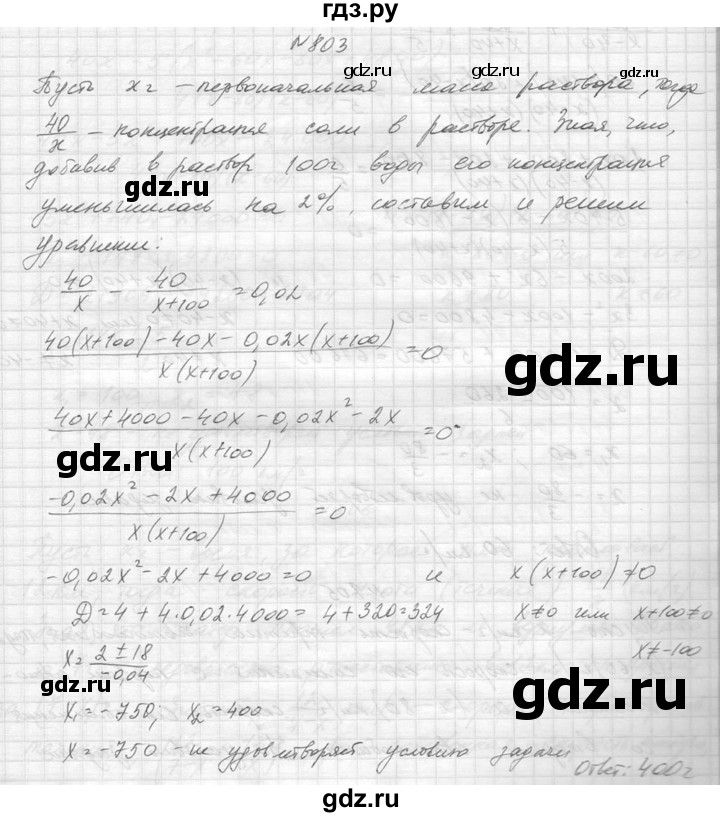 гдз.ру
N 803
Пусть x г – первоначальная масса раствора, тогда
40/x – концентрация соли в растворе. Зная, что,
добавив в раствор 100г воды его концентрация
уменьшилась на 2%, составим и решим
уравнение:
40/x - 40/(x+100) = 0,02
(40(x+100) - 40x - 0,02x(x+100))/(x(x+100)) = 0
(40x + 4000 - 40x - 0,02x² - 2x)/(x(x+100)) = 0
(-0,02x² - 2x + 4000)/(x(x+100)) = 0
-0,02x² - 2x + 4000 = 0 и x(x+100) ≠ 0
D = 4 + 4·0,02·4000 = 4 + 320 = 324 x ≠ 0 или x+100 ≠ 0
x = (2 ± 18)/(-0,04) x ≠ -100
x₁ = -750; x₂ = 400
x = -750 - не удовлетворяет условию задачи
Ответ: 400г
gdz.ru
gdz.ru
gdz.ru
gdz.ru
gdz.ru
gdz.ru
gdz.ru
gdz.ru
gdz.ru
gdz.ru
gdz.ru
gdz.ru
gdz.ru